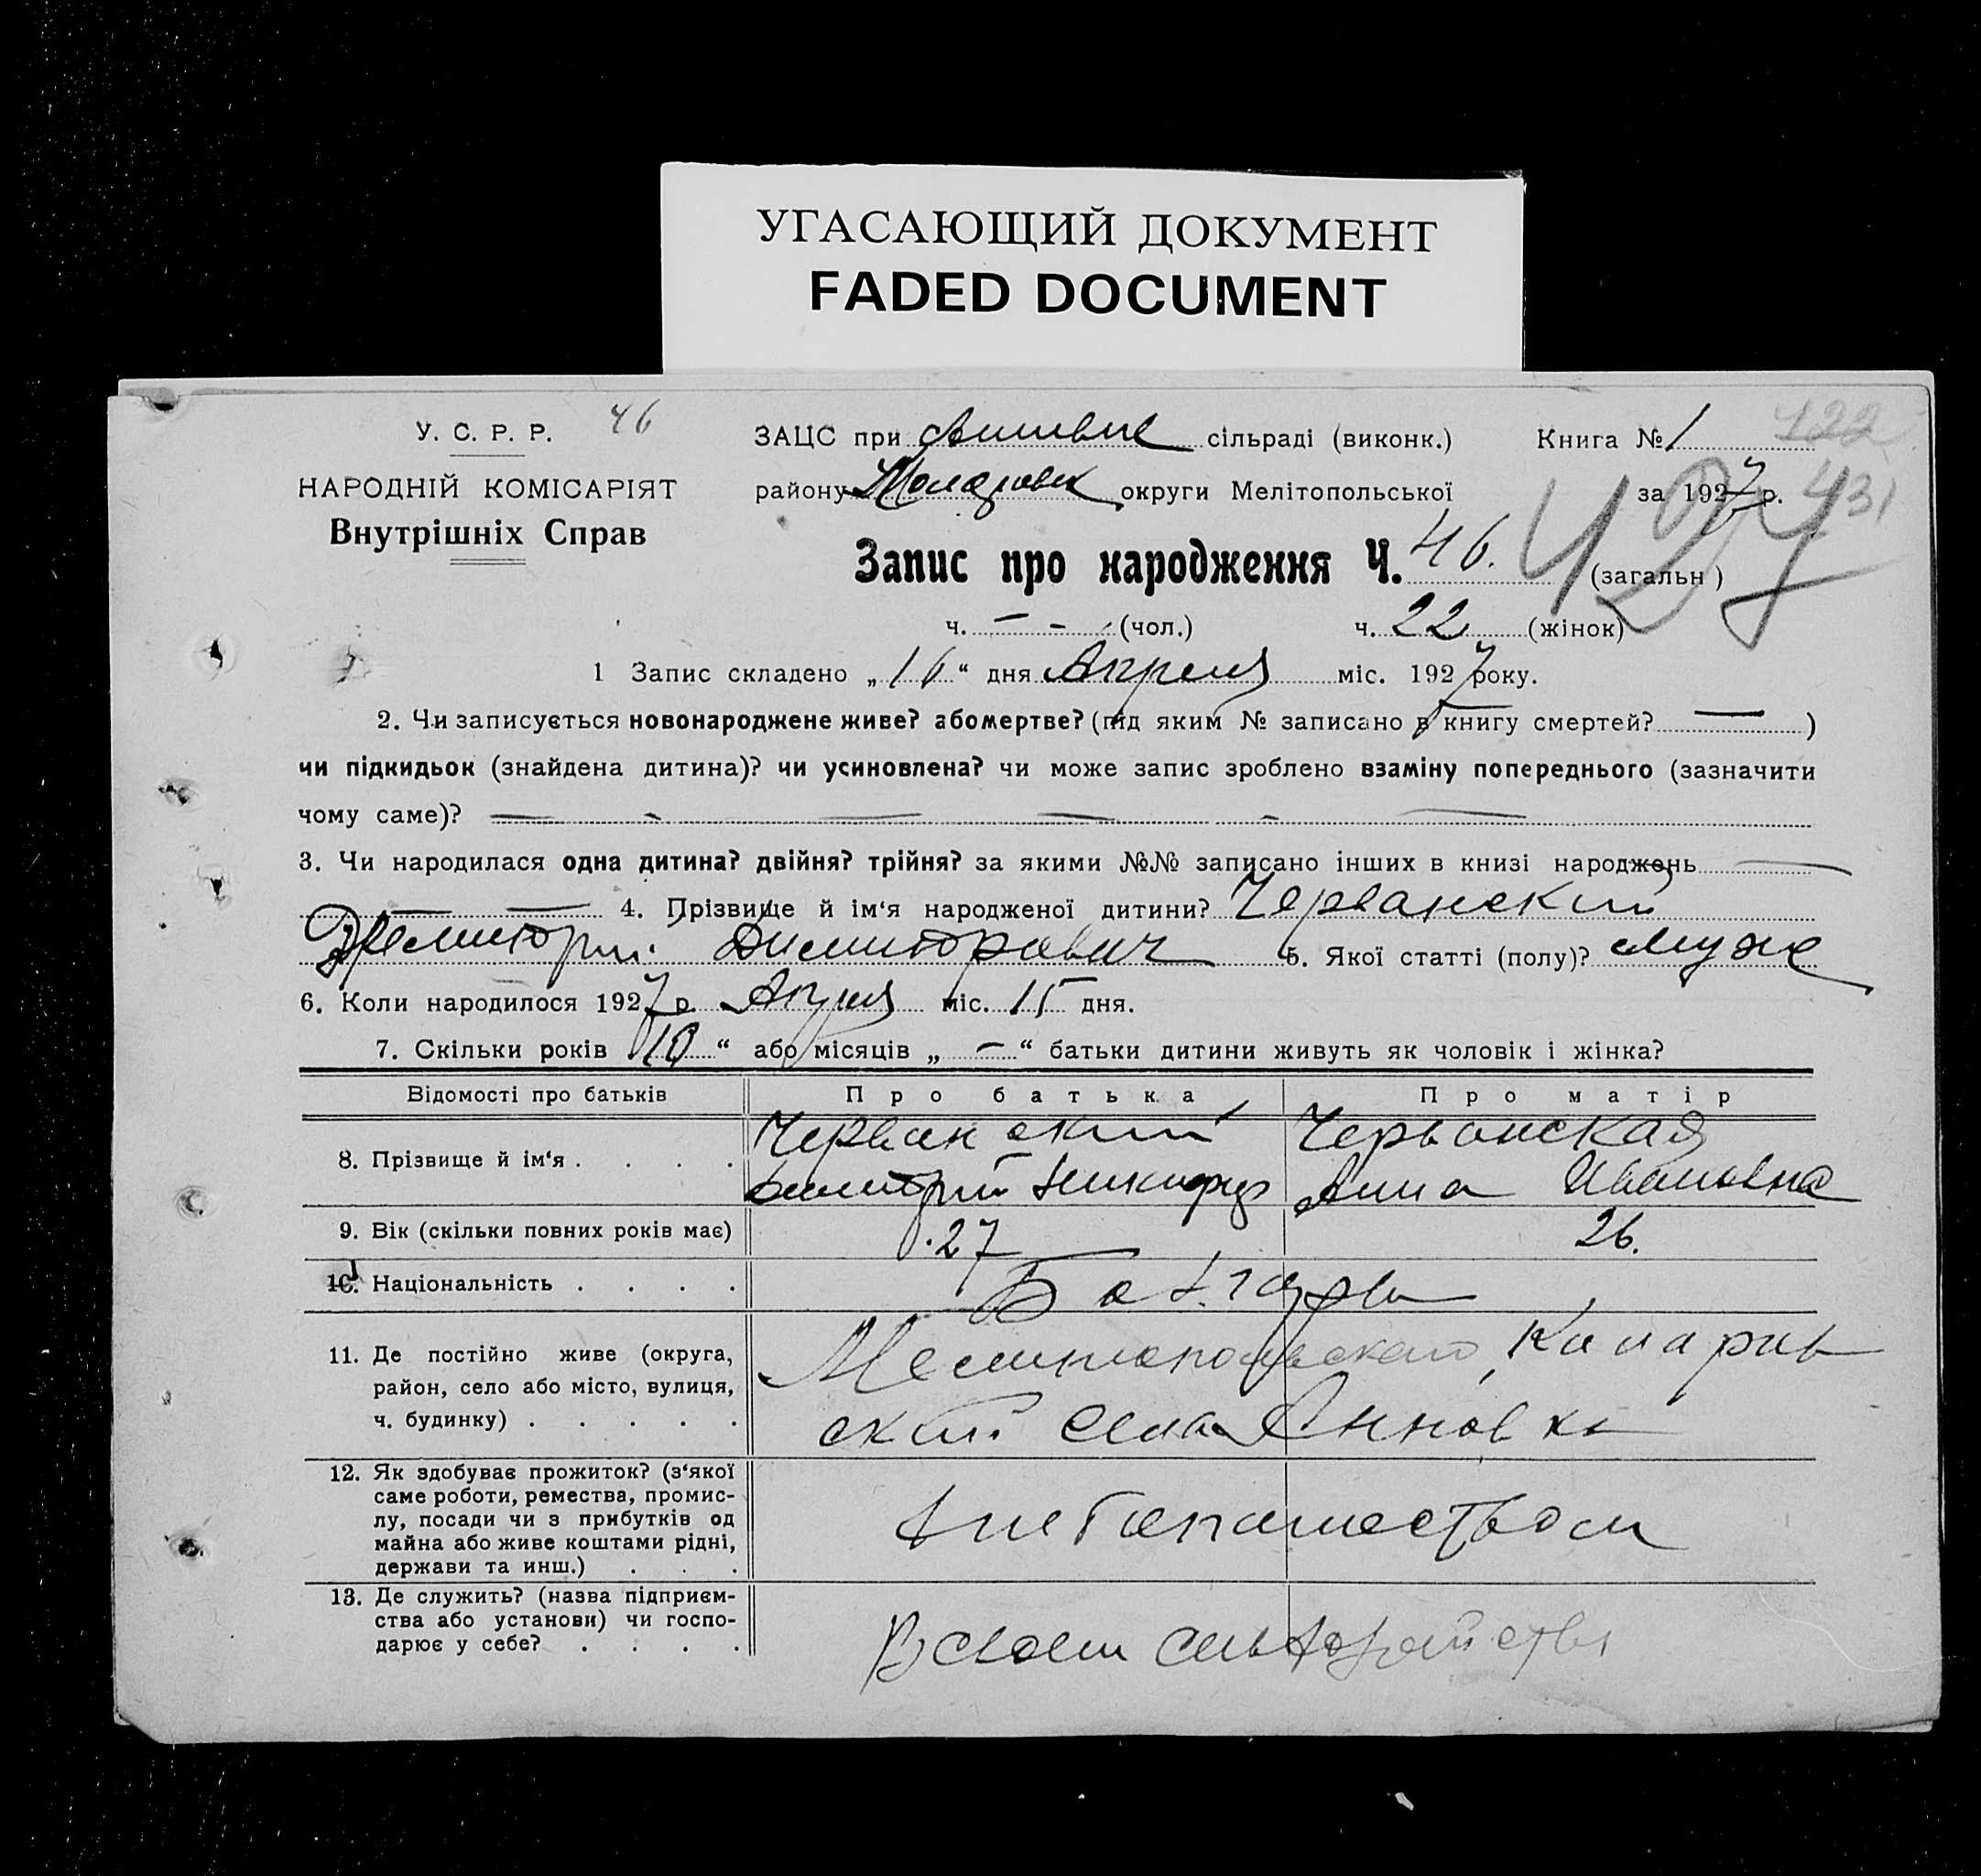 УГАСАЮЩИЙ ДОКУМЕНТ
FADED DOCUMENT
У. С. Р. Р. 46
НАРОДНІЙ КОМІСАРІЯТ
Внутрішніх Справ
ЗАЦС при сільраді (виконк.) Книга № 1 422
району округи Мелітопольської за 1927 р. 431
Запис про народження Ч. 46. (загальн) 427
ч. — - (чол.) ч. 22 (жінок)
1 Запис складено „16“ дня Апреля міс. 1927 року.
2. Чи записується новонароджене живе? або мертве? (під яким № записано в книгу смертей? — )
чи підкидьок (знайдена дитина)? чи усиновлена? чи може запис зроблено взаміну попереднього (зазначити
чому саме)? —
3. Чи народилася одна дитина? двійня? трійня? за якими №№ записано інших в книзі народжень —
— 4. Прізвище й ім‘я народженої дитини? Черванский
Димитрий Димитрович 5. Якої статті (полу)? Муже
6. Коли народилося 1927 р. Апреля міс. 15 дня.
7. Скільки років 10 “ або місяців „ — “ батьки дитини живуть як чоловік і жінка?
Відомості про батьків Про батька Про матір
8. Прізвище й ім‘я . . . . Черванский Черванская
Димитрий Никифор Анна Ивановна
9. Вік (скільки повних років має) 27 26.
10. Національність . . . . Болгары
11. Де постійно живе (округа,
район, село або місто, вулиця,
ч. будинку) . . . . .
Мелитопольского
ский села Анновка
12. Як здобуває прожиток? (з‘якої
саме роботи, ремества, промис-
лу, посади чи з прибутків од
майна або живе коштами рідні,
держави та инш.) . . .
хлебопашеством
13. Де служить? (назва підприєм-
ства або установи) чи госпо-
дарює у себе? . . . .
В своем сельхозяйстве